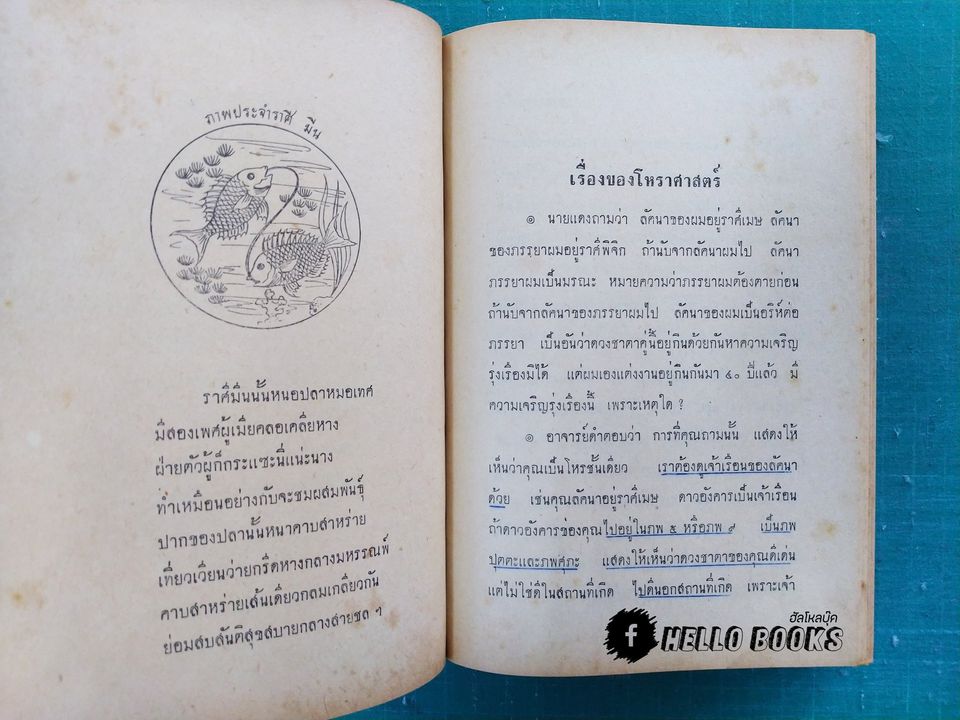 ภาพประจำราศี มีน
ราศีมีนนั้นหนอปลาหมอเทศ
มีสองเพศผู้เมียคลอเคลียหาง
ฝ่ายตัวผู้ก็กระแซะนี่แน่ะนาง
ทำเหมือนอย่างกับจะชมผสมพันธุ์
ปากของปลานั้นหนาคาบสาหร่าย
เที่ยวเวียนว่ายกรีดหางกลางมหรรณพ์
คาบสาหร่ายเส้นเดียวกลมเกลียวกัน
ย่อมสบสันติสุขสบายกลางสายชล ฯ
เรื่องของโหราศาสตร์
๑ นายแดงถามว่า ลัคนาของผมอยู่ราศีเมษ ลัคนา
ของภรรยาผมอยู่ราศีพิจิก ถ้านับจากลัคนาผมไป ลัคนา
ภรรยาผมเป็นมรณะ หมายความว่าภรรยาผมต้องตายก่อน
ถ้านับจากลัคนาของภรรยาผมไป ลัคนาของผมเป็นอริห์ต่อ
ภรรยา เป็นอันว่าดวงชาตาคู่นี้อยู่กินด้วยกันหาความเจริญ
รุ่งเรื่องมิได้ แต่ผมเองแต่งงานอยู่กินกันมา ๕๐ ปีแล้ว มี
ความเจริญรุ่งเรื่องนี้ เพราะเหตุใด ?
๑ อาจารย์ดำตอบว่า การที่คุณถามนั้น แสดงให้
เห็นว่าคุณเป็นโหรชั้นเดียว เราต้องดูเจ้าเรือนของลัคนา
ด้วย เช่นคุณลัคนาอยู่ราศีเมษ ดาวอังคารเป็นเจ้าเรือน
ถ้าดาวอังคารของคุณไปอยู่ในภพ ๕ หรือภพ ๙ เป็นภพ
ปุตตะและภพศุภะ แสดงให้เห็นว่าดวงชาตาของคุณดีเด่น
แต่ไม่ใช่ดีในสถานที่เกิด ไปดีนอกสถานที่เกิด เพราะเจ้า
ฮัลโหลบุ๊ค
f HELLO BOOKS